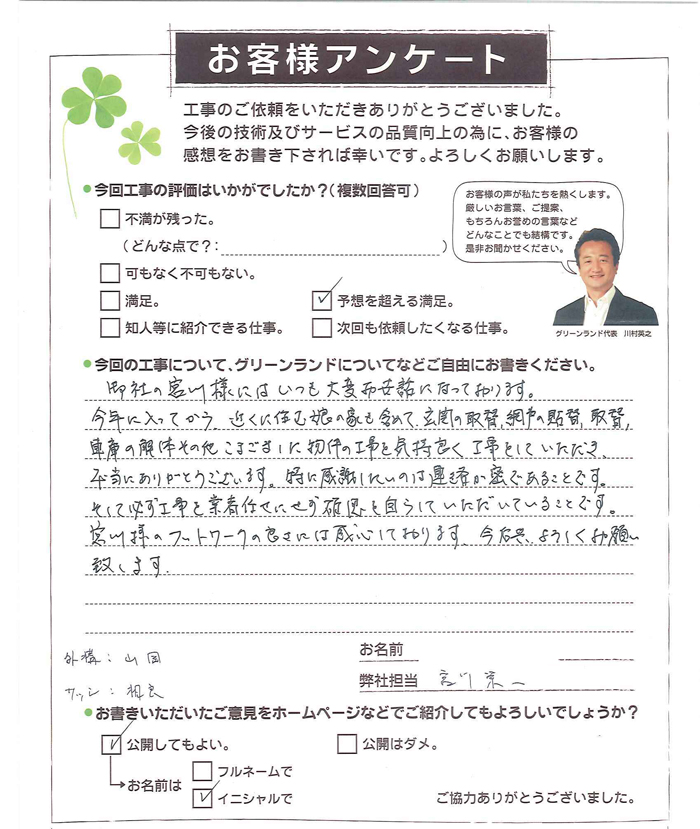 お客様アンケート
工事のご依頼をいただきありがとうございました。
今後の技術及びサービスの品質向上の為に、お客様の
感想をお書き下されば幸いです。よろしくお願いします。
今回工事の評価はいかがでしたか?(複数回答可)
不満が残った。
(どんな点で?: )
可もなく不可もない。
満足。
予想を超える満足。
知人等に紹介できる仕事。
次回も依頼したくなる仕事。
お客様の声が私たちを熱くします。
厳しいお言葉、ご提案、
もちろんお誉めの言葉など
どんなことでも結構です。
是非お聞かせください。
グリーンランド代表 川村英之
今回の工事について、グリーンランドについてなどご自由にお書きください。
御社の宮川様にはいつも大変お世話になっております。
今年に入ってから、近くに住む娘の家も含めて、玄関の取替、網戸の貼替、取替、
車庫の解体その他こまごました物件の工事を気持良く工事をしていただき、
本当にありがとうございます。特に感謝したいのは連絡が密であることです。
そして必ず工事を業者任せにせず確認を自らしていただいていることです。
宮川様のフットワークの良さには感心しております。今后共、よろしくお願い
致します。
外構:山田
サッシ:相良
お名前
弊社担当 宮川 
お書きいただいたご意見をホームページなどでご紹介してもよろしいでしょうか?
公開してもよい。
公開はダメ。
お名前は
フルネームで
イニシャルで
ご協力ありがとうございました。